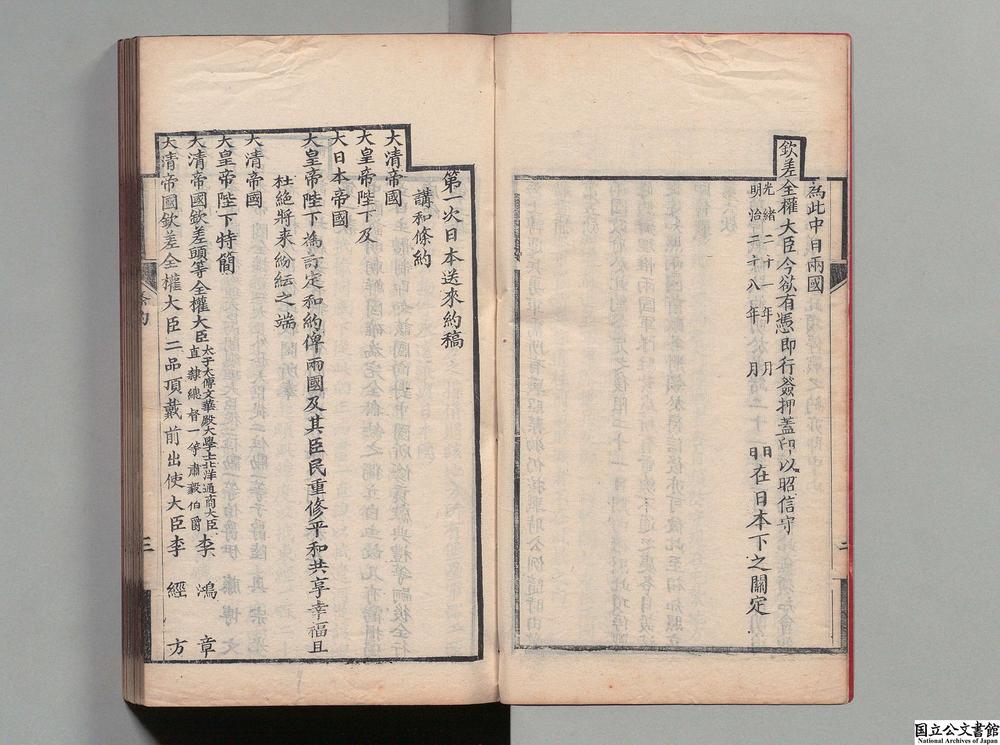 為此中日兩國
欽差全權大臣今欲有憑即行簽押蓋印以昭信守
光緒二十一年 月 日
明治二十八年 月 日在日本下之關定
第一次日本送來約稿
講和條約
大清帝國
大皇帝陛下及
大日本帝國
大皇帝陛下為訂定和約俾兩國及其臣民重修平和共享幸福且
杜絕將來紛紜之端
大清帝國
大皇帝陛下特簡
大清帝國欽差頭等全權大臣太子太傅文華殿大學士北洋通商大臣直隸總督一等肅毅伯爵李鴻章
大清帝國欽差全權大臣二品頂戴前出使大臣李經方
三
国立公文書館
National Archives of Japan